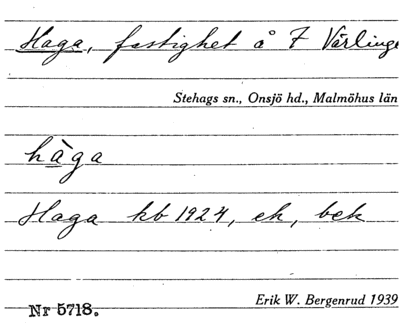 Haga, fastighet å 7 Värlinge
Stehags sn., Onsjö hd., Malmöhus län
hàga
Haga kb 1924, ek, bek
Erik W. Bergenrud 1939
Nr 5718.